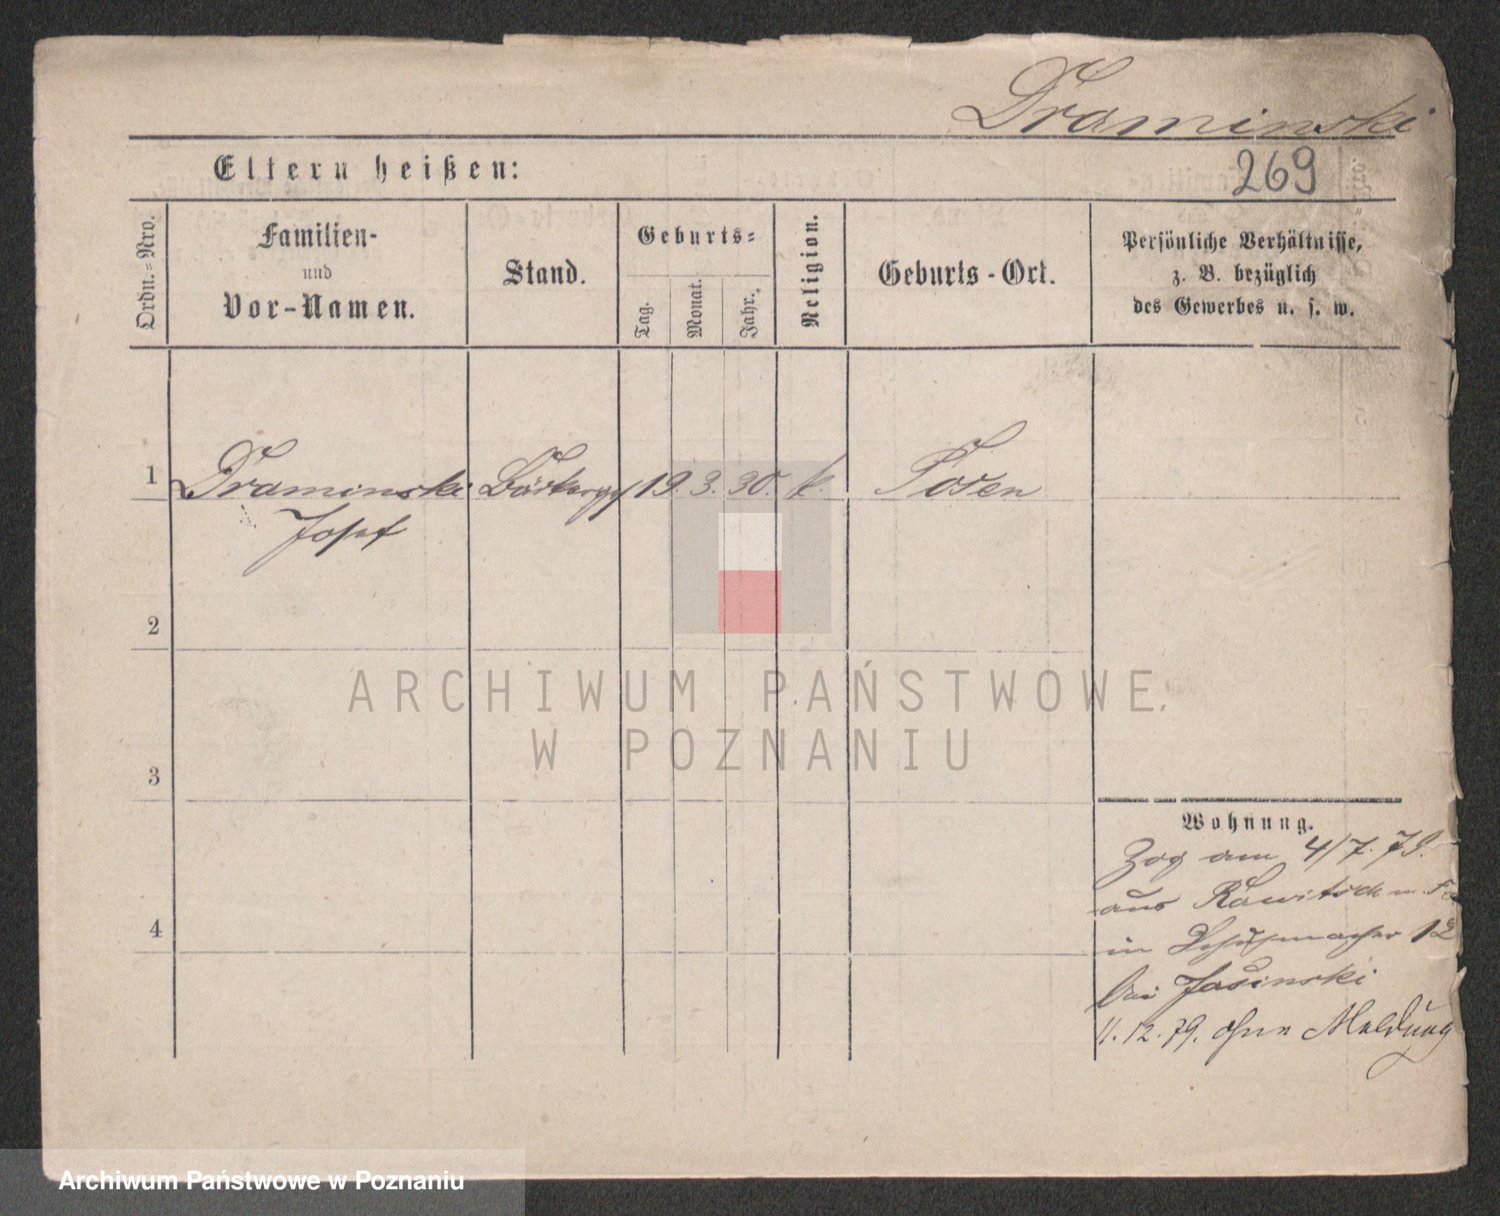 Draminski
269
Eltern heißen:
Ordn.-Nro.
Familien-
und
Vor-Namen.
Stand.
Geburts-
Tag.
Monat.
Jahr.
Religion.
Geburts-Ort.
Persönliche Verhältnisse,
z. B. bezüglich
des Gewerbes u. s. w.
1 Draminski 19. 3. 30. k. Posen
Josef
2
3
4
Wohnung.
Zog am 4/7. 79.
aus Rawitsch
in Schuhmacher 12
bei Jasinski
11.12.79. ohne Meldung
ARCHIWUM PAŃSTWOWE
W POZNANIU
Archiwum Państwowe w Poznaniu